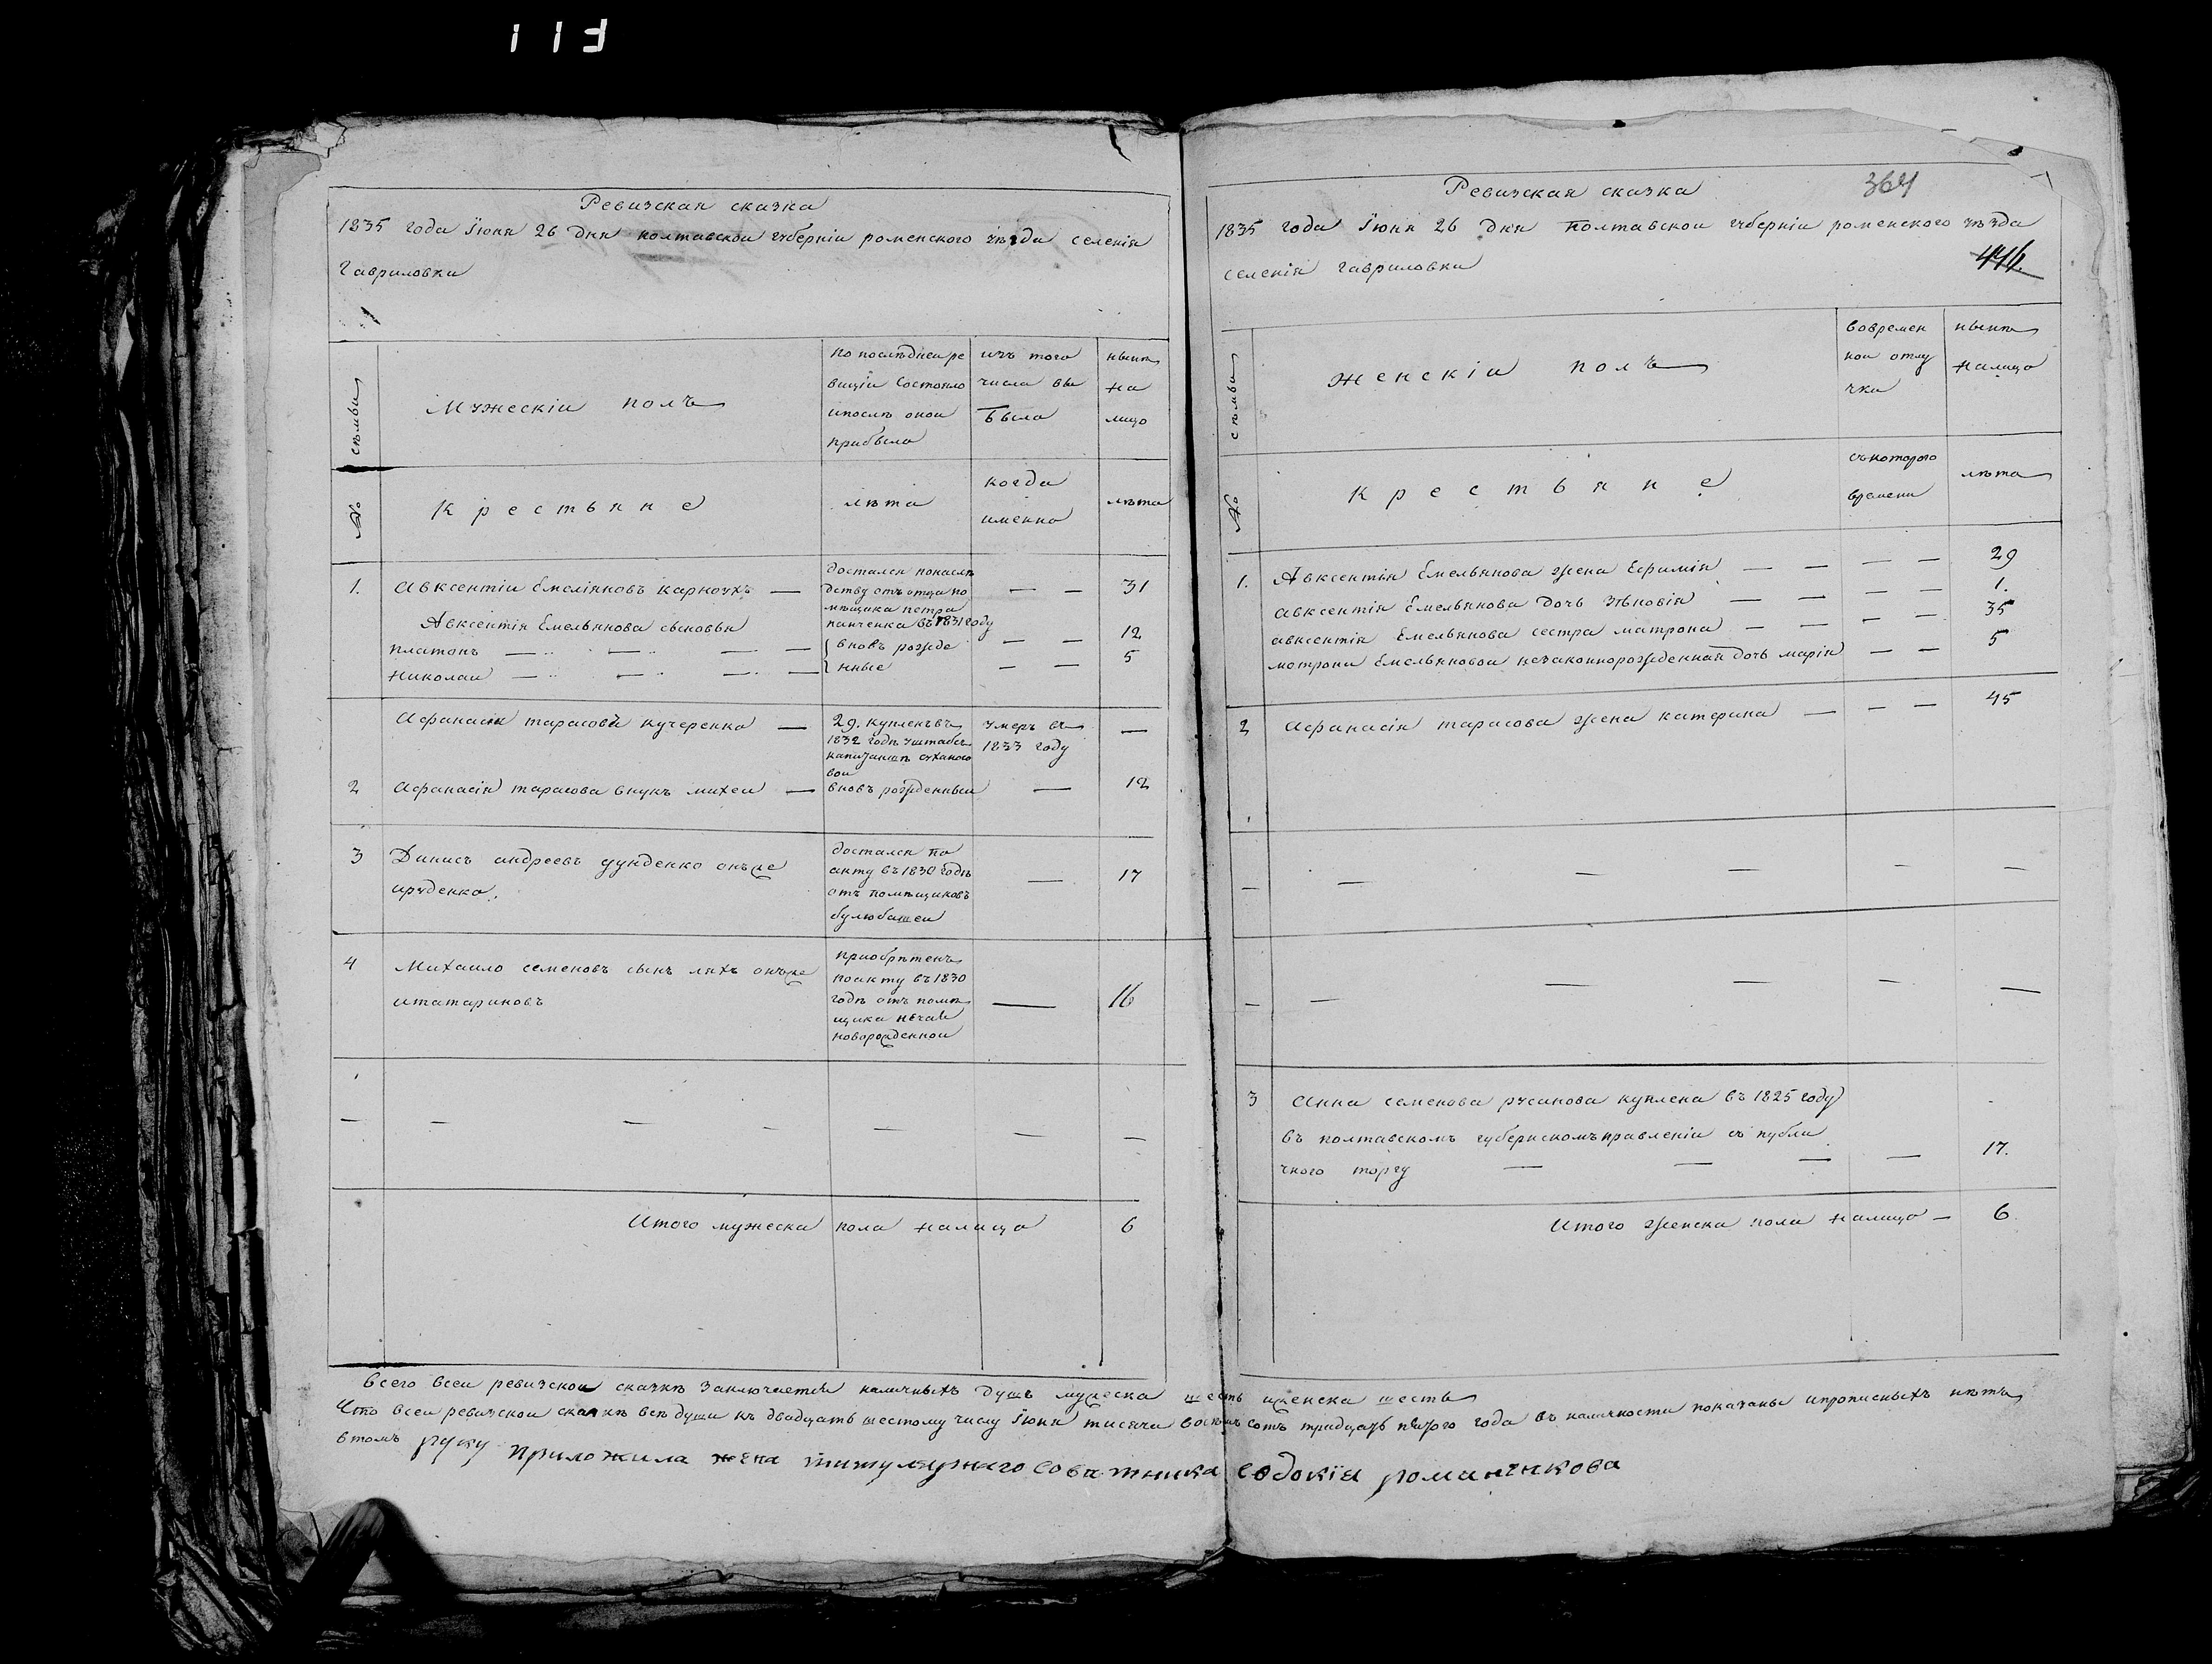 Ревизская сказка
1835 года Їюня 26 дня полтавской губерніи роменского уѣзда селенія
Гавриловки
семьи
Мужескіи полъ
по последнеи ре
визіи состояло
ипослѣ онои
прибыло
изъ того
числа вы
было
нынѣ
на
лицо
№
Крестьяне
лѣта
когда
именно
лѣта
1. Авксентіи Емеліяновъ карноухъ — досталси понаслѣ
дству отъ отца по
мѣщика петра
панченка въ 1831 году — — 31
Авксентія Емельянова сыновья
платонъ — — — — вновъ рожде — — 12
николаи — — — — нные — — 5
Афанасіи тарасовъ кучеренко — 29. купленъ въ
1832 годѣ уштабсъ
капитанши сухано
вои
умеръ въ
1833 году —
2 Афанасія тарасова внукъ михеи — вновъ рожденныи — 12
3 Данисъ андреевъ дунденко онъже
ируденко.
достался по
акту въ 1830 годѣ
отъ помѣщиковъ
булюбашеи
— 17
4 Михаило семеновъ сынъ ляхъ онъже
итатариновъ
приобрѣтенъ
поакту въ 1830
годѣ отъ помѣ
щика нечаи
новорожденнои
— 16
— — — — — — —
Итого мужеска пола налицо 6
Ревизская сказка
364
1835 года Їюня 26 дня полтавскои губерніи роменского уѣзда
селенія гавриловки
446.
семьи
женскіи полъ
вовремен
нои отлу
чки
нынѣ
налицо
№
крестьяне
съкоторого
времени
лѣта
1. Авксентія Емельянова жена Ефимія — — — — 29
авксентія Емельянова дочь зѣновія — — — — 1.
авксентія Емельянова сестра матрона — — — — 35
матроны Емельяновои незаконнорожденная дочь марія — — 5
2 Афанасія тарасова жена катерина — — — 45
— — — — — —
— — — — — —
3 Анна семенова русанова куплена въ 1825 году
въ полтавскомъ губернскомъ правленіи съ публи
чного торгу — — — — 17.
Итого женска пола налицо — 6
Всего всеи ревизскои сказкѣ заключаетси наличныхъ душъ мужеска шесть иженска шесть
Что всеи ревизскои сказкѣ всѣ души къ двадцать шестому числу Їюня тисяча восѣмъ сотъ тридцать пятого года въ наличности показаны ипрописныхъ нѣтъ
втомъ руку приложила жена титулярнаго советника евдокія романчкова